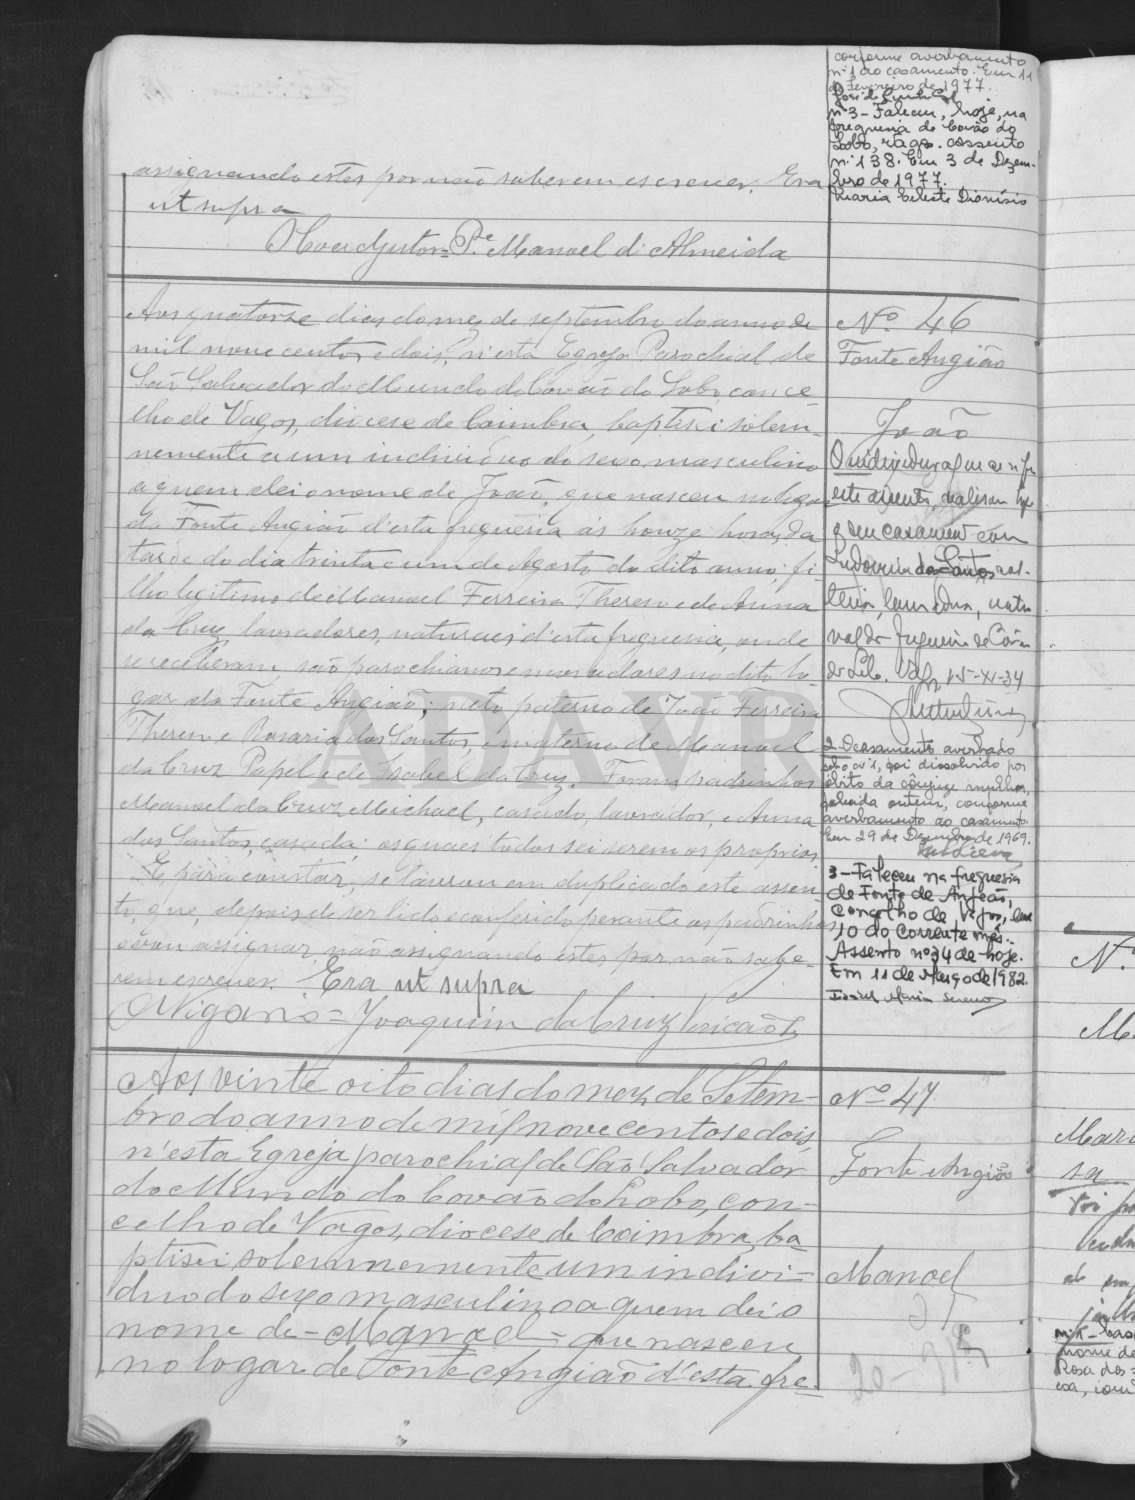 conforme averbamento
nº 1 ao casamento. Em 11
de Fevereiro de 1977.
nº 3 - Faleceu, hoje, na
freguesia de Covão do
Lobo, Vagos. assento
nº 138. Em 3 de Dezem-
bro de 1977.
Maria Celeste Dionísio
assignando estes por não saberem escrever. Era
ut supra
O Coadjutor = Pe. Manoel d'Almeida
Nº 46
Fonte Angião
João
Aos quatorze dias do mez de septembro do anno de
mil nove centos e dois, n'esta Egreja Parochial de
São Salvador do Mundo do Covão do Lobo, conce
lho de Vagos, diocese de Coimbra, baptisei solem-
nemente a um individuo do sexo masculino
a quem dei o nome de João, que nasceu no logar
da Fonte Angião d'esta freguesia ás honze horas da
tarde do dia trinta e um de Agosto do dito anno; fi-
lho legitimo de Manoel Ferreira Therese e de Anna
da Cruz, lavradores, naturaes d'esta freguesia, onde
se receberam, são parochianos e moradores no dito lo-
gar da Fonte Angião; neto paterno de João Ferreira
Therese e Rosaria dos Santos, e materno de Manoel
da Cruz Papel e de Isabel da Cruz. Foram padrinhos
Manoel da Cruz Michael, casado, lavrador, e Anna
dos Santos, casada; os quaes todos sei serem os proprios.
E para constar, se lavrou em duplicado este assen-
to, que, depois de ser lido e conferido perante os padrinhos
o vou assignar, não assignando estes por não sabe-
rem escrever. Era ut supra
O Vigario = Joaquim da Cruz
O individuo a que se refere
este assento, realisou hoje
o seu casamento com
Ludovina dos Santos, sol-
teira, lavradora, natu
ral da freguesia de Covão
do Lobo. Vagos, 15-XI-34
2 - O casamento averbado
sob o nº 1, foi dissolvido por
óbito da cônjuge mulher,
falecida ontem, conforme
averbamento ao casamento.
Em 29 de Dezembro de 1969.
3 - Faleceu na freguesia
de Fonte de Angeão,
Concelho de Vagos, em
10 do corrente mês.
Assento nº 34 de hoje.
Em 11 de Março de 1982.
Nº 47
Fonte Angião
Manoel
Aos vinte oito dias do mez de Setem-
bro do anno de mil nove centos e dois,
n'esta Egreja parochial de São Salvador
do Mundo do Covão do Lobo, con-
celho de Vagos, diocese de Coimbra, ba
ptisei solemnemente um indivi-
duo do sexo masculino a quem dei o
nome de - Manoel - que nasceu
no logar de Fonte Angião d'esta fre-
ADAVR